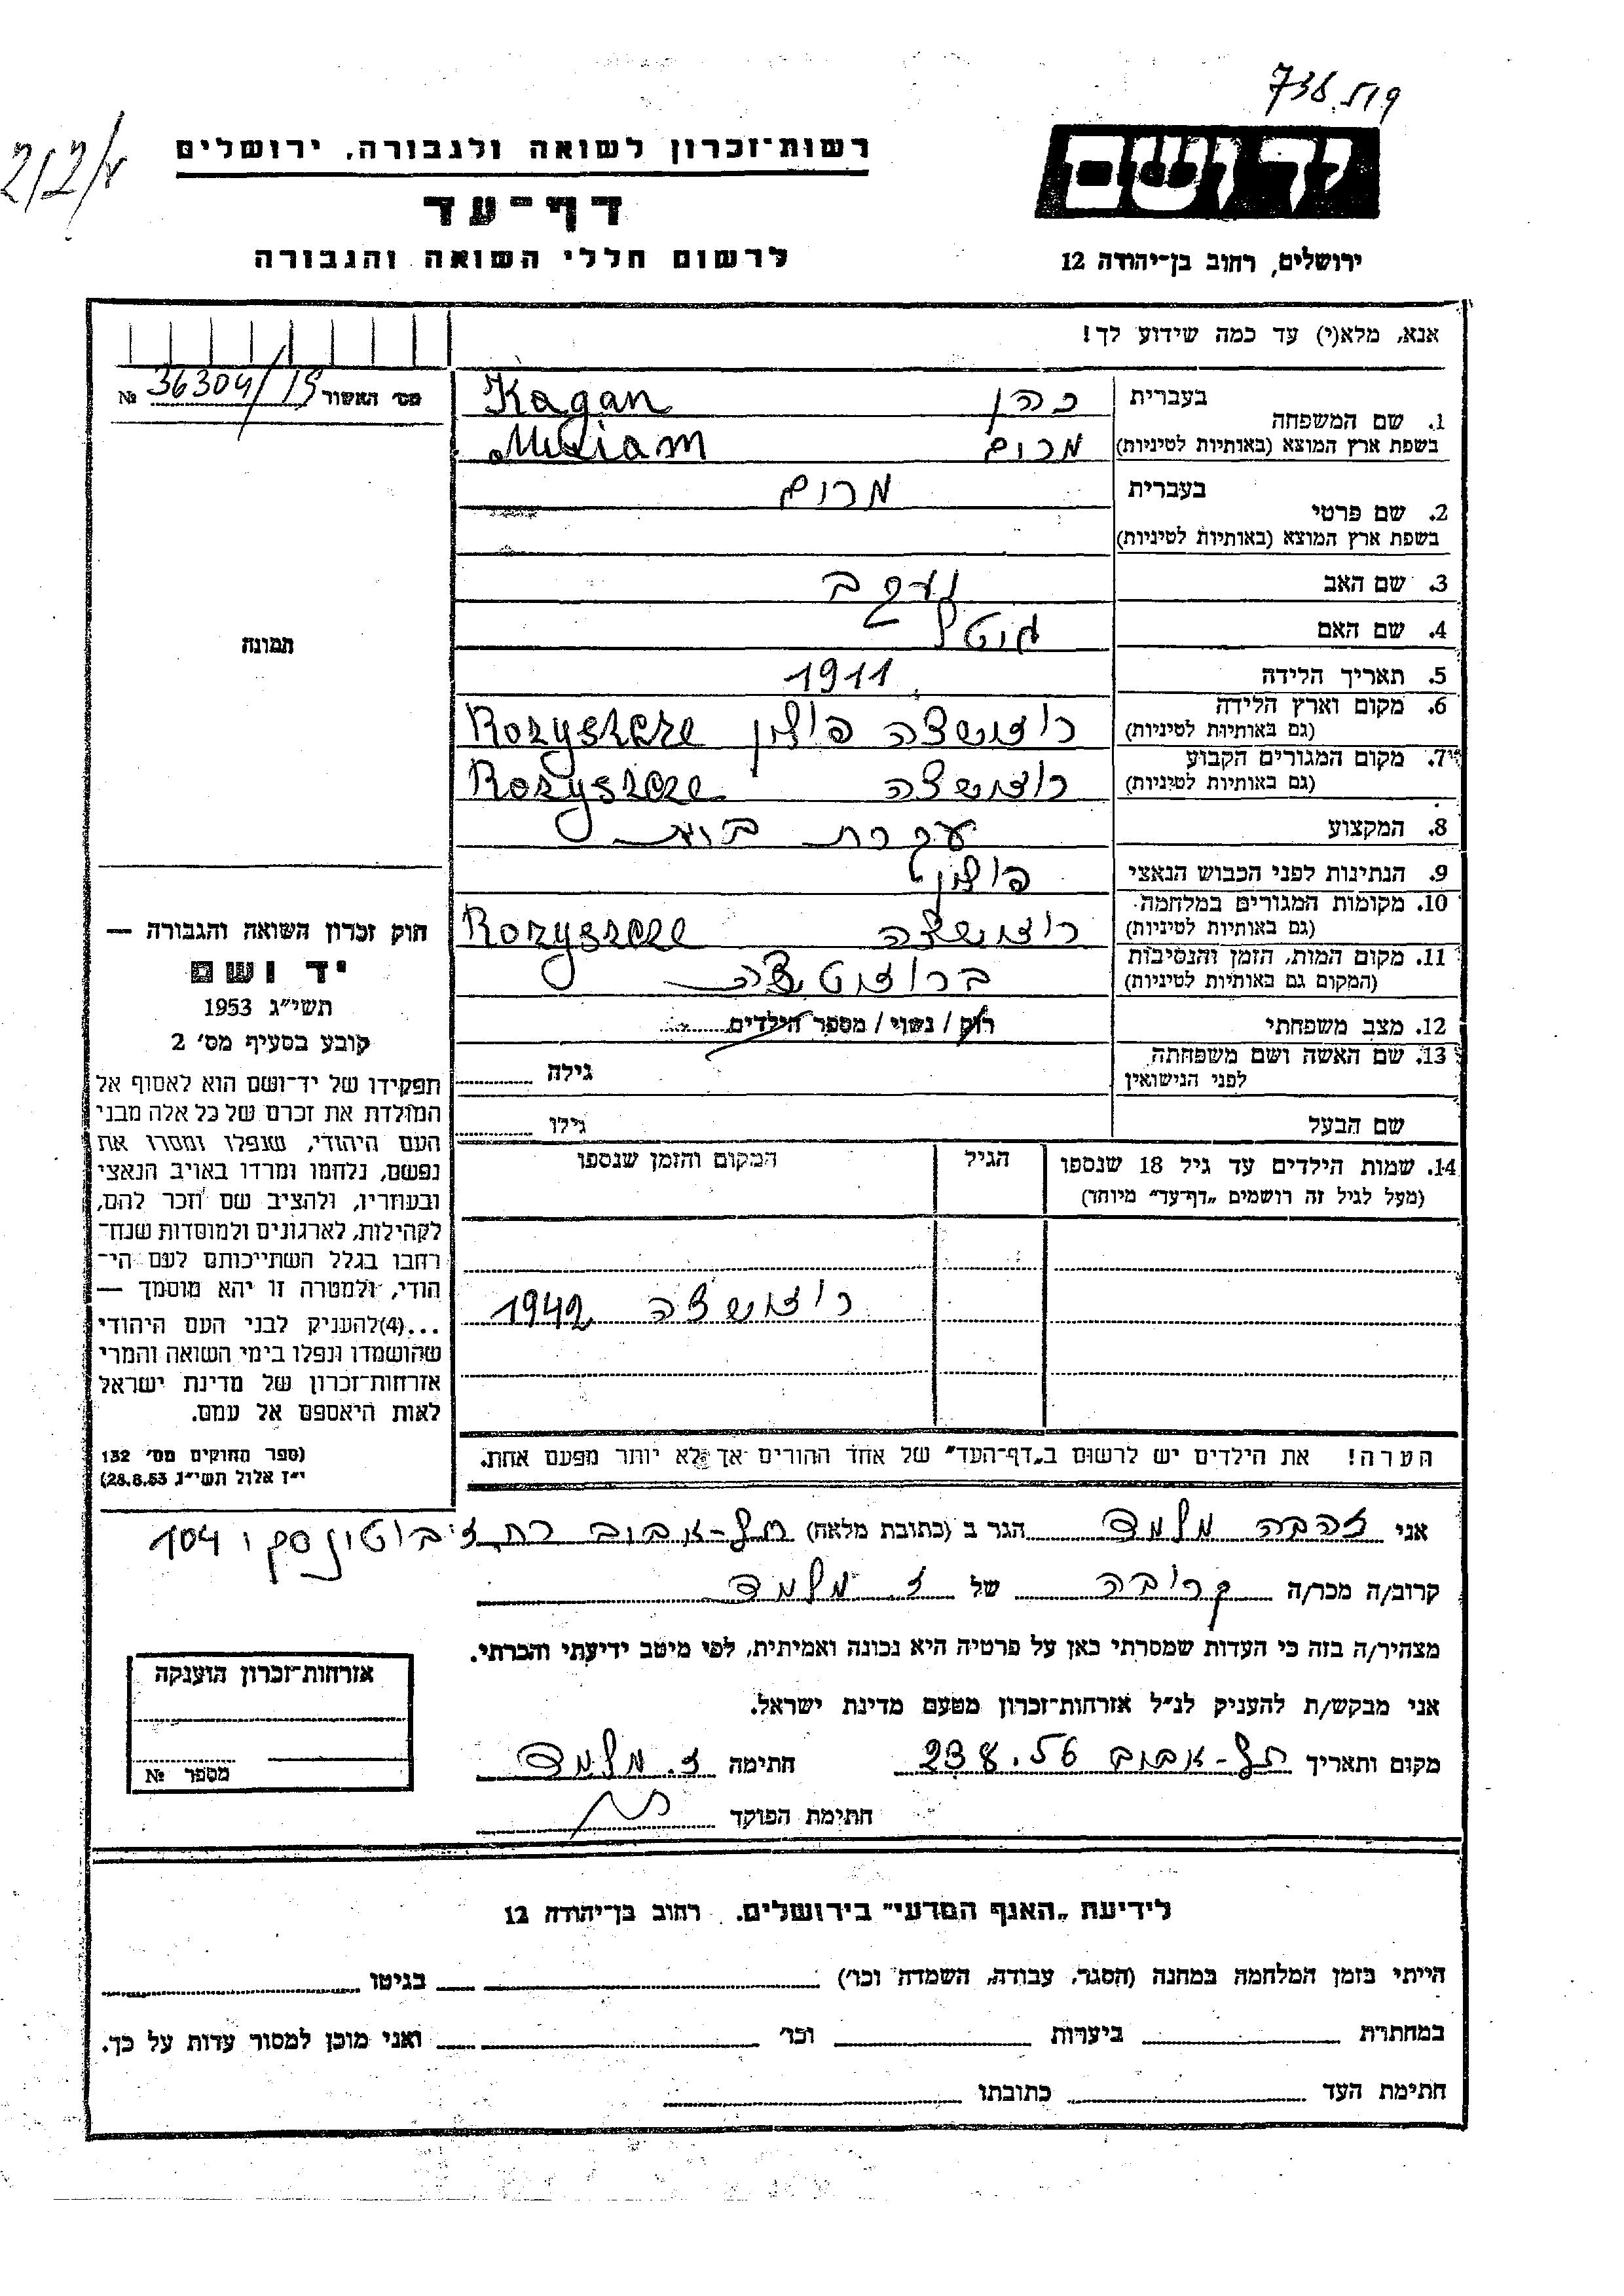 738
רשות־זכרון לשואה ולגבורה, ירושלים
דף־עד
לרשום חללי השואה והגבורה
יד ושם
ירושלים, רחוב בן־יהודה 12
אנא, מלא(י) עד כמה שידוע לך!
מס׳ האשור 36304/19 №
1. שם המשפחה
בעברית כהן Kagan
בשפת ארץ המוצא (באותיות לטיניות) מרים Miriam
2. שם פרטי
בעברית מרים
בשפת ארץ המוצא (באותיות לטיניות)
3. שם האב יעקב
4. שם האם גיטל
5. תאריך הלידה 1911
6. מקום וארץ הלידה
(גם באותיות לטיניות) רוז׳ישצה פולין Rozyszcze
7. מקום המגורים הקבוע
(גם באותיות לטיניות) רוז׳ישצה Rozyszcze
8. המקצוע עקרת בית
9. הנתינות לפני הכבוש הנאצי פולני
10. מקומות המגורים במלחמה
(גם באותיות לטיניות) רוז׳ישצה Rozyszcze
11. מקום המות, הזמן והנסיבות
(המקום גם באותיות לטיניות)
12. מצב משפחתי רוק / נשוי / מספר הילדים
13. שם האשה ושם משפחתה
לפני הנישואין גילה
שם הבעל גילו
14. שמות הילדים עד גיל 18 שנספו הגיל המקום והזמן שנספו
(מעל לגיל זה רושמים „דף־עד״ מיוחד)
רוז׳ישצה 1942
הערה! את הילדים יש לרשום ב„דף־העד״ של אחד ההורים אך לא יותר מפעם אחת.
תמונה
חוק זכרון השואה והגבורה —
יד ושם
תשי״ג 1953
קובע בסעיף מס׳ 2
תפקידו של יד־ושם הוא לאסוף אל
המולדת את זכרם של כל אלה מבני
העם היהודי, שנפלו ומסרו את
נפשם, נלחמו ומרדו באויב הנאצי
ובעוזריו, ולהציב שם וזכר להם,
לקהילות, לארגונים ולמוסדות שנח־
רחבו בגלל השתייכותם לעם הי־
הודי, ולמטרה זו יהא מוסמך —
...(4)להעניק לבני העם היהודי
שהושמדו ונפלו בימי השואה והמרי
אזרחות־זכרון של מדינת ישראל
לאות היאספם אל עמם.
(ספר החוקים מס׳ 132
י״ז אלול תשי״ג 28.8.53)
אני זהבה מלמד הגר ב (כתובת מלאה) תל-אביב רח ז׳בוטינסקי 104
קרוב/ה מכר/ה קרובה של ז מלמד
מצהיר/ה בזה כי העדות שמסרתי כאן על פרטיה היא נכונה ואמיתית, לפי מיטב ידיעתי והכרתי.
אני מבקש/ת להעניק לנ״ל אזרחות־זכרון מטעם מדינת ישראל.
מקום ותאריך תל-אביב 23 8.56 חתימה ז. מלמד
חתימת הפוקד
אזרחות־זכרון הוענקה
מספר №
לידיעת „האגף המדעי״ בירושלים. רחוב בן־יהודה 12
הייתי בזמן המלחמה במחנה (הסגר, עבודה, השמדה וכו׳) בגיטו
במחתרת ביערות וכו׳ ואני מוכן למסור עדות על כך.
חתימת העד כתובתו